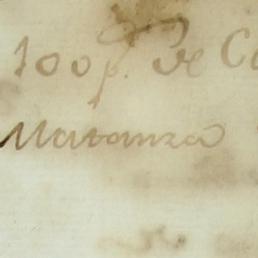 100 p. de Ca
Matanza